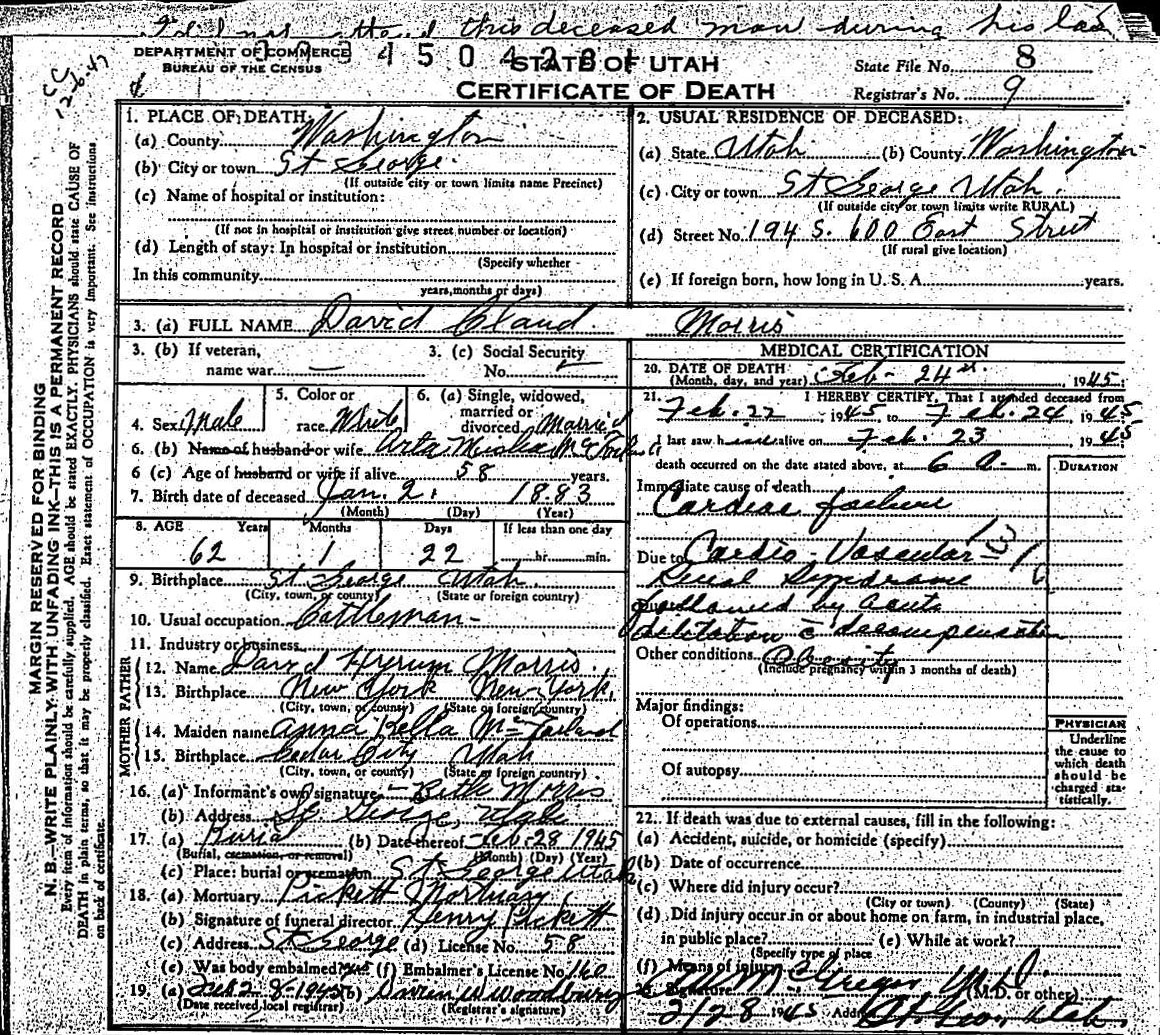 I did not attend this deceased man during his las
DEPARTMENT OF COMMERCE
BUREAU OF THE CENSUS
STATE OF UTAH
CERTIFICATE OF DEATH
State File No. 8
Registrar's No. 9
MARGIN RESERVED FOR BINDING
N. B.—WRITE PLAINLY WITH UNFADING INK—THIS IS A PERMANENT RECORD
Every item of information should be carefully supplied. AGE should be stated EXACTLY. PHYSICIANS should state CAUSE OF
DEATH in plain terms, so that it may be properly classified. Exact statement of OCCUPATION is very important. See instructions
on back of certificate.
1. PLACE OF DEATH:
(a) County Washington
(b) City or town St George
(If outside city or town limits name Precinct)
(c) Name of hospital or institution:
(If not in hospital or institution give street number or location)
(d) Length of stay: In hospital or institution
(Specify whether
In this community
years, months or days)
2. USUAL RESIDENCE OF DECEASED:
(a) State Utah (b) County Washington
(c) City or town St George Utah.
(If outside city or town limits write RURAL)
(d) Street No. 194 S. 600 East Street
(If rural give location)
(e) If foreign born, how long in U. S. A. years.
3. (a) FULL NAME David Claud Morris
3. (b) If veteran,
name war —
3. (c) Social Security
No.
4. Sex Male
5. Color or
race White
6. (a) Single, widowed,
married or
divorced Married
6. (b) Name of husband or wife
6 (c) Age of husband or wife if alive 58 years.
7. Birth date of deceased Jan. 2. 1883
(Month) (Day) (Year)
8. AGE Years Months Days If less than one day
62 1 22 hr. min.
9. Birthplace St George Utah.
(City, town, or county) (State or foreign country)
10. Usual occupation Cattleman
11. Industry or business
FATHER
12. Name David Hyrum Morris.
13. Birthplace New York New York.
(City, town, or county) (State or foreign country)
MOTHER
14. Maiden name Anna Bella McFarland
15. Birthplace Cedar City Utah
(City, town, or county) (State or foreign country)
16. (a) Informant's own signature Beth Morris
(b) Address St George, Utah
17. (a) Burial (b) Date thereof Feb. 28 1945
(Burial, cremation, or removal) (Month) (Day) (Year)
(c) Place: burial or cremation St George Utah
18. (a) Mortuary Pickett Mortuary
(b) Signature of funeral director Henry Pickett
(c) Address St George (d) License No. 58
(e) Was body embalmed? yes (f) Embalmer's License No. 160
19. (a) Feb 28-1945 (b) Woodbury
(Date received local registrar) (Registrar's signature)
MEDICAL CERTIFICATION
20. DATE OF DEATH
(Month, day, and year) Feb- 24 1945
21. I HEREBY CERTIFY, That I attended deceased from
Feb. 22 1945 to Feb. 24 1945
I last saw him alive on Feb. 23 1945
death occurred on the date stated above, at 6 a m.
DURATION
Immediate cause of death
Cardiac failure
Due to Cardio-Vascular
Renal Syndrome
followed by acute
dilitation c decompensation
Other conditions Obesity
(Include pregnancy within 3 months of death)
Major findings:
Of operations
Of autopsy
PHYSICIAN
Underline
the cause to
which death
should be
charged sta-
tistically.
22. If death was due to external causes, fill in the following:
(a) Accident, suicide, or homicide (specify)
(b) Date of occurrence
(c) Where did injury occur?
(City or town) (County) (State)
(d) Did injury occur in or about home on farm, in industrial place,
in public place? (e) While at work?
(Specify type of place
(f) Means of injury
McGregor M.D.
(M.D. or other)
2/28 1945 Address St. Geo. Utah